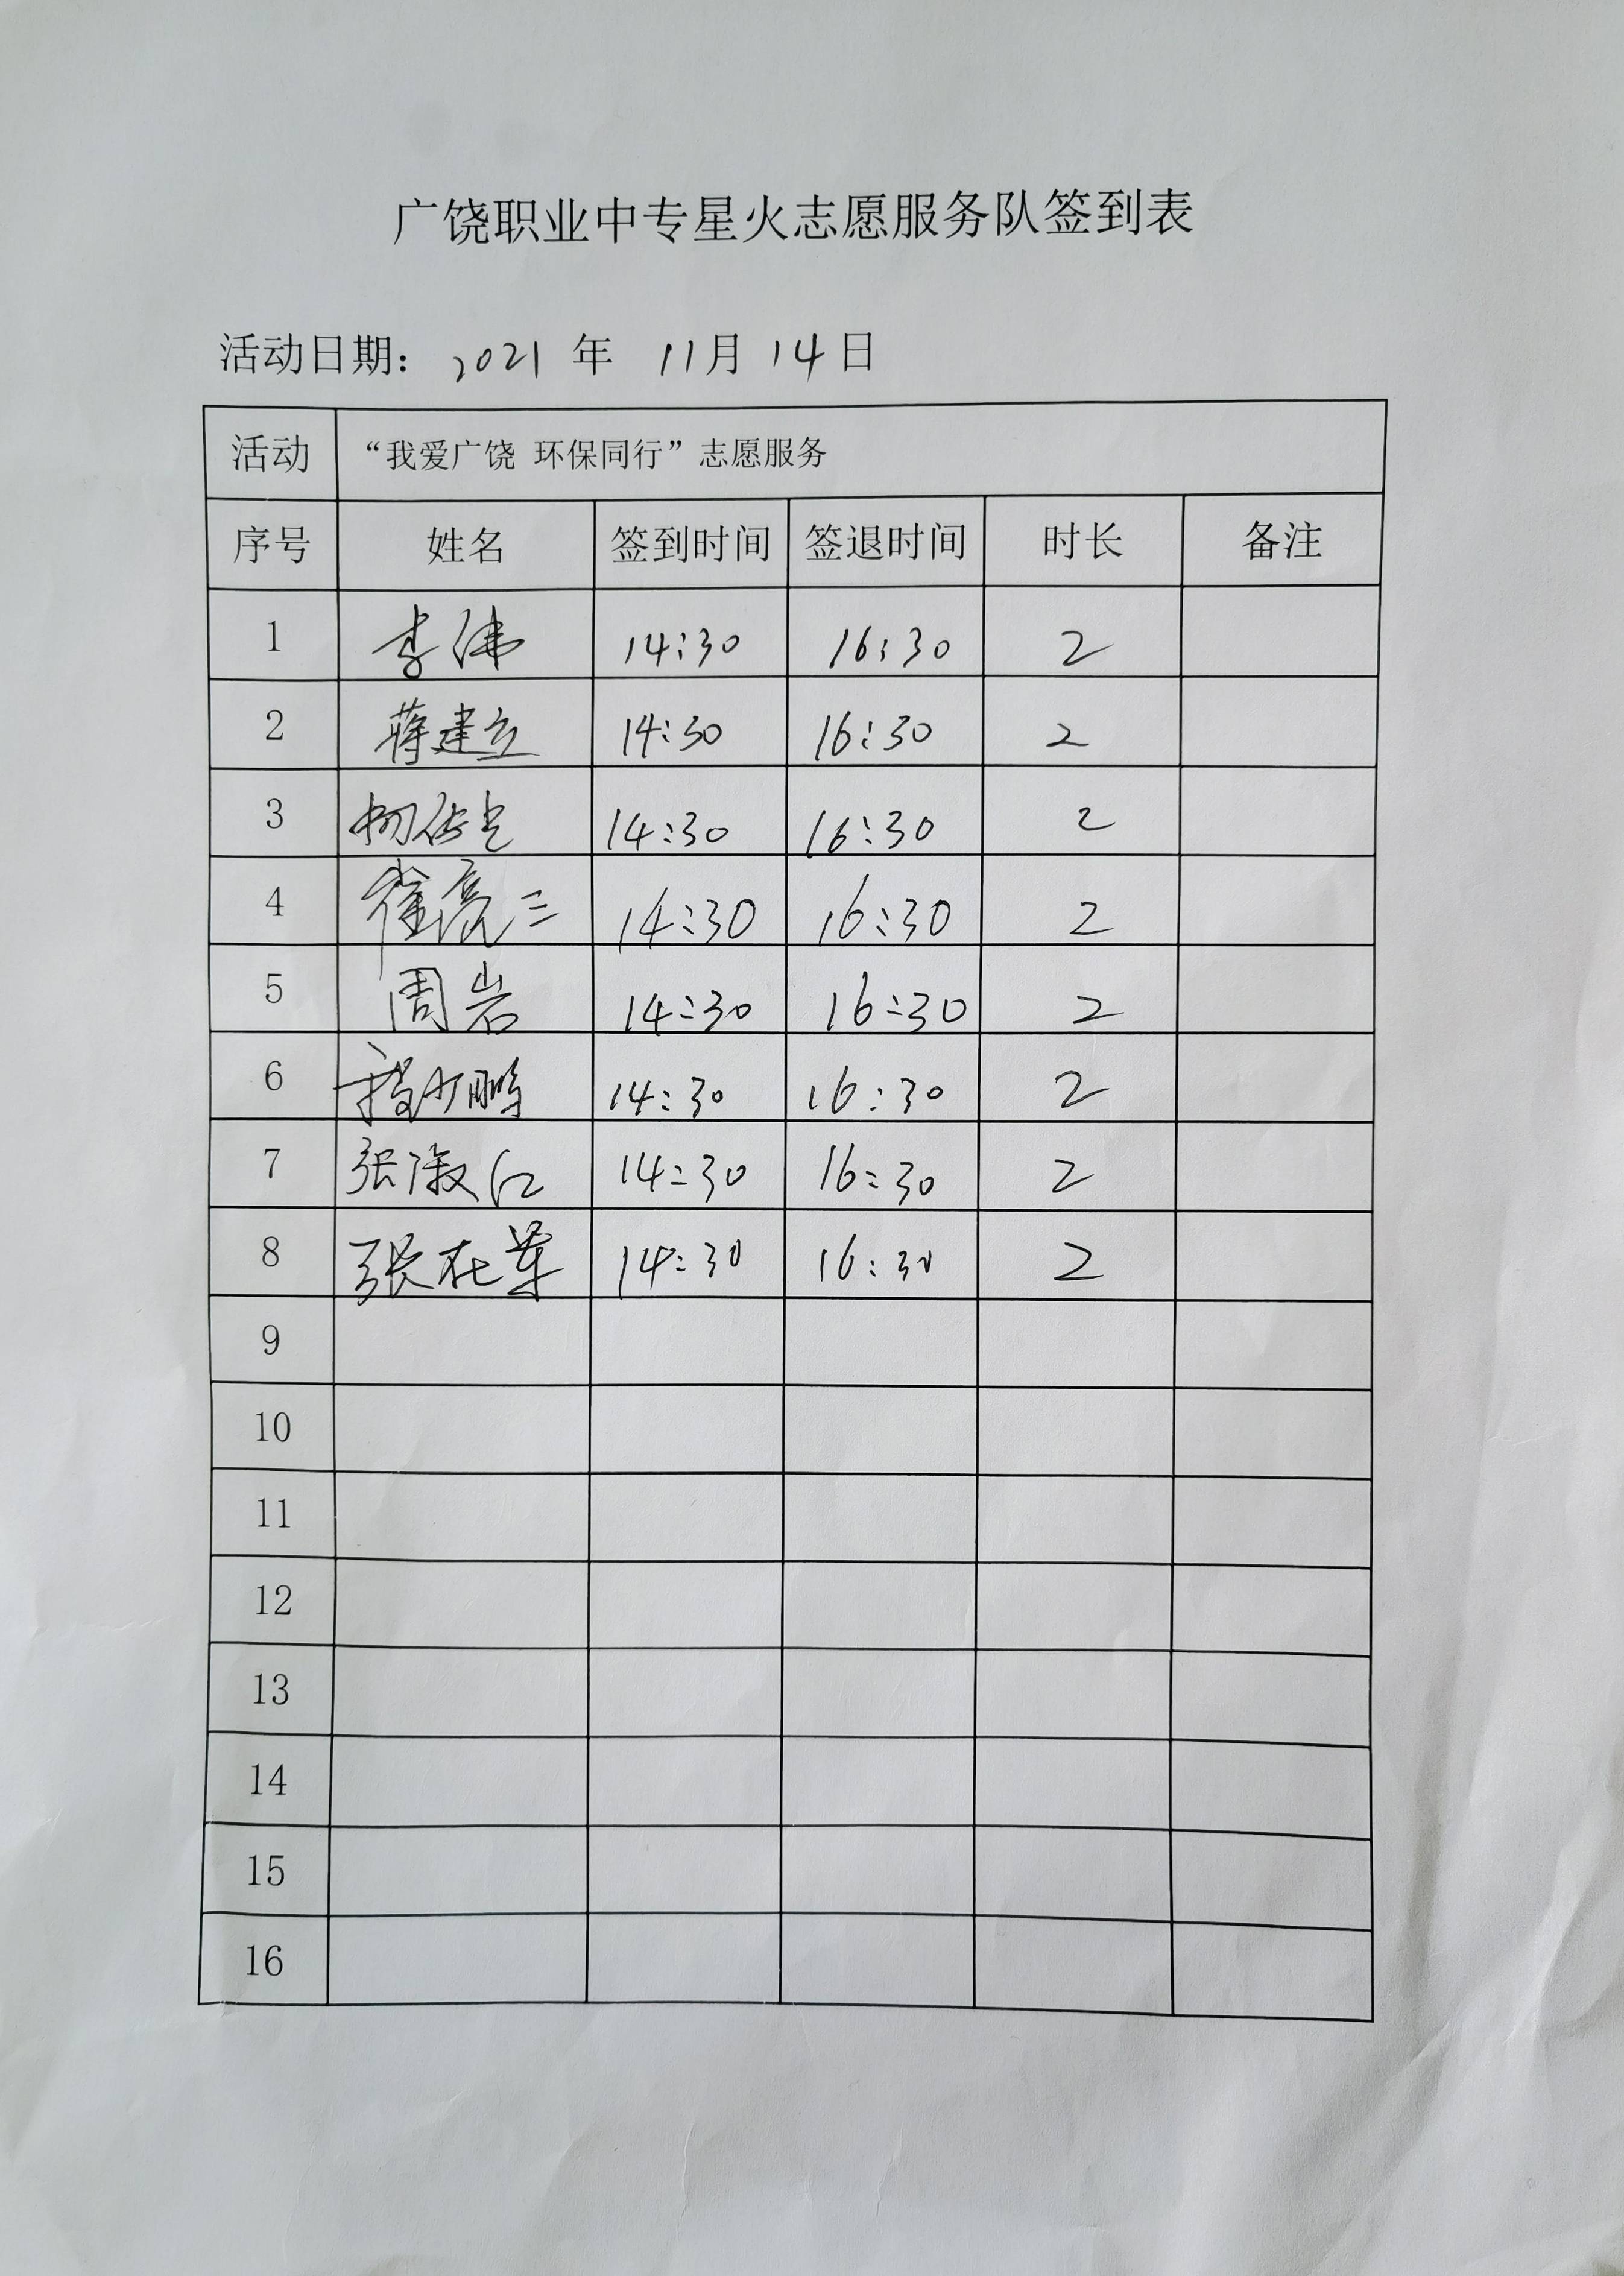 广饶职业中专星火志愿服务队签到表
活动日期：2021 年 11月 14日
活动 “我爱广饶 环保同行”志愿服务
序号 姓名 签到时间 签退时间 时长 备注
1 李伟 14:30 16:30 2
2 蒋建立 14:30 16:30 2
3 14:30 16:30 2
4 崔亮三 14:30 16:30 2
5 周岩 14:30 16:30 2
6 少鹏 14:30 16:30 2
7 张淑红 14:30 16:30 2
8 张在 14:30 16:30 2
9
10
11
12
13
14
15
16